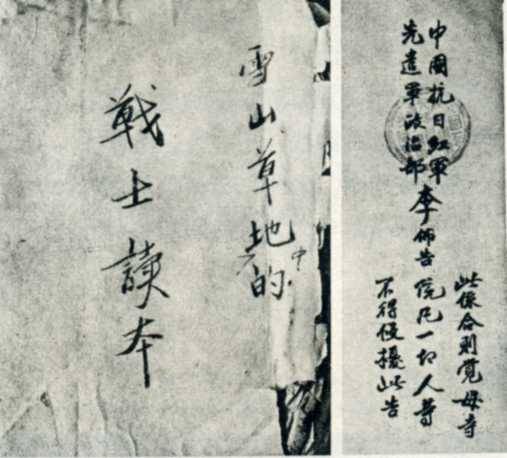 雪山草地中的
戰士讀本
中國抗日紅軍
先遣軍政治部
李佈告
此係合則覺母寺
院凡一切人等
不得侵擾此告